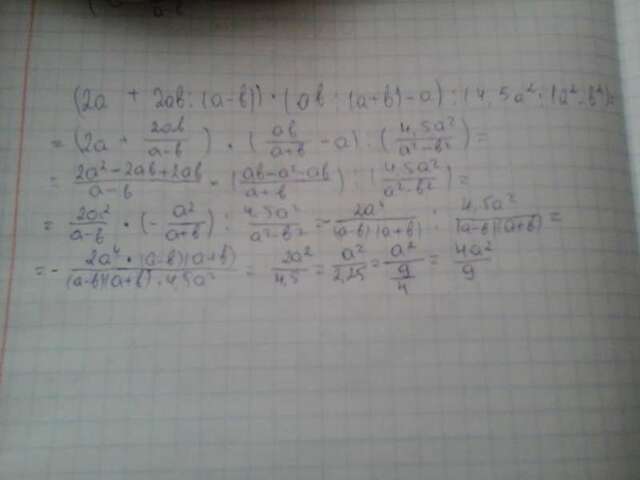 (2a + 2ab : (a-b)) · (ab : (a+b) - a) : (4,5a² : (a²-b²)) =
= (2a + 2ab/(a-b)) · (ab/(a+b) - a) : (4,5a²/(a²-b²)) =
= (2a²-2ab+2ab)/(a-b) · ((ab-a²-ab)/(a+b)) : (4,5a²/(a²-b²)) =
= 2a²/(a-b) · (- a²/(a+b)) : 4,5a²/(a²-b²) = - 2a⁴/((a-b)(a+b)) : 4,5a²/((a-b)(a+b)) =
= - (2a⁴ · (a-b)(a+b))/((a-b)(a+b) · 4,5a²) = 2a²/4,5 = a²/2,25 = a²/(9/4) = 4a²/9